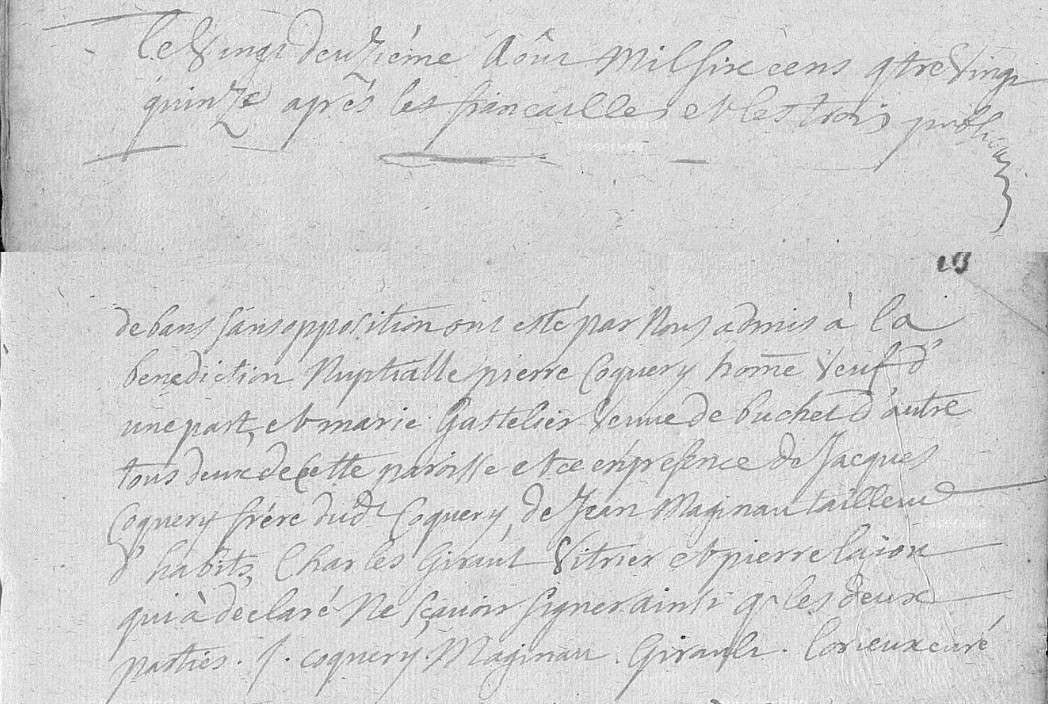 le Vingt deuxiéme Aôut Mil Six cens qtre Vingt
quinze aprês les fiancailles et les trois publicãons
18
de bans sans opposition ont esté par Nous admis à la
benediction Nuptialle pierre Coquery home Veuf d'
une part, et marie Gastelier Veuve de buchet d'autre
tous deux de Cette paroisse et ce en presence de Jacques
Coquery frére dudt Coquery, de Jean Maginau tailleur
d'habits, Charles Giraut Vitrier et pierre
qui à déclaré Ne sçavoir signer ainsi q les deux
parties. J. coquery. Maginau. Girault. Lorieux curé